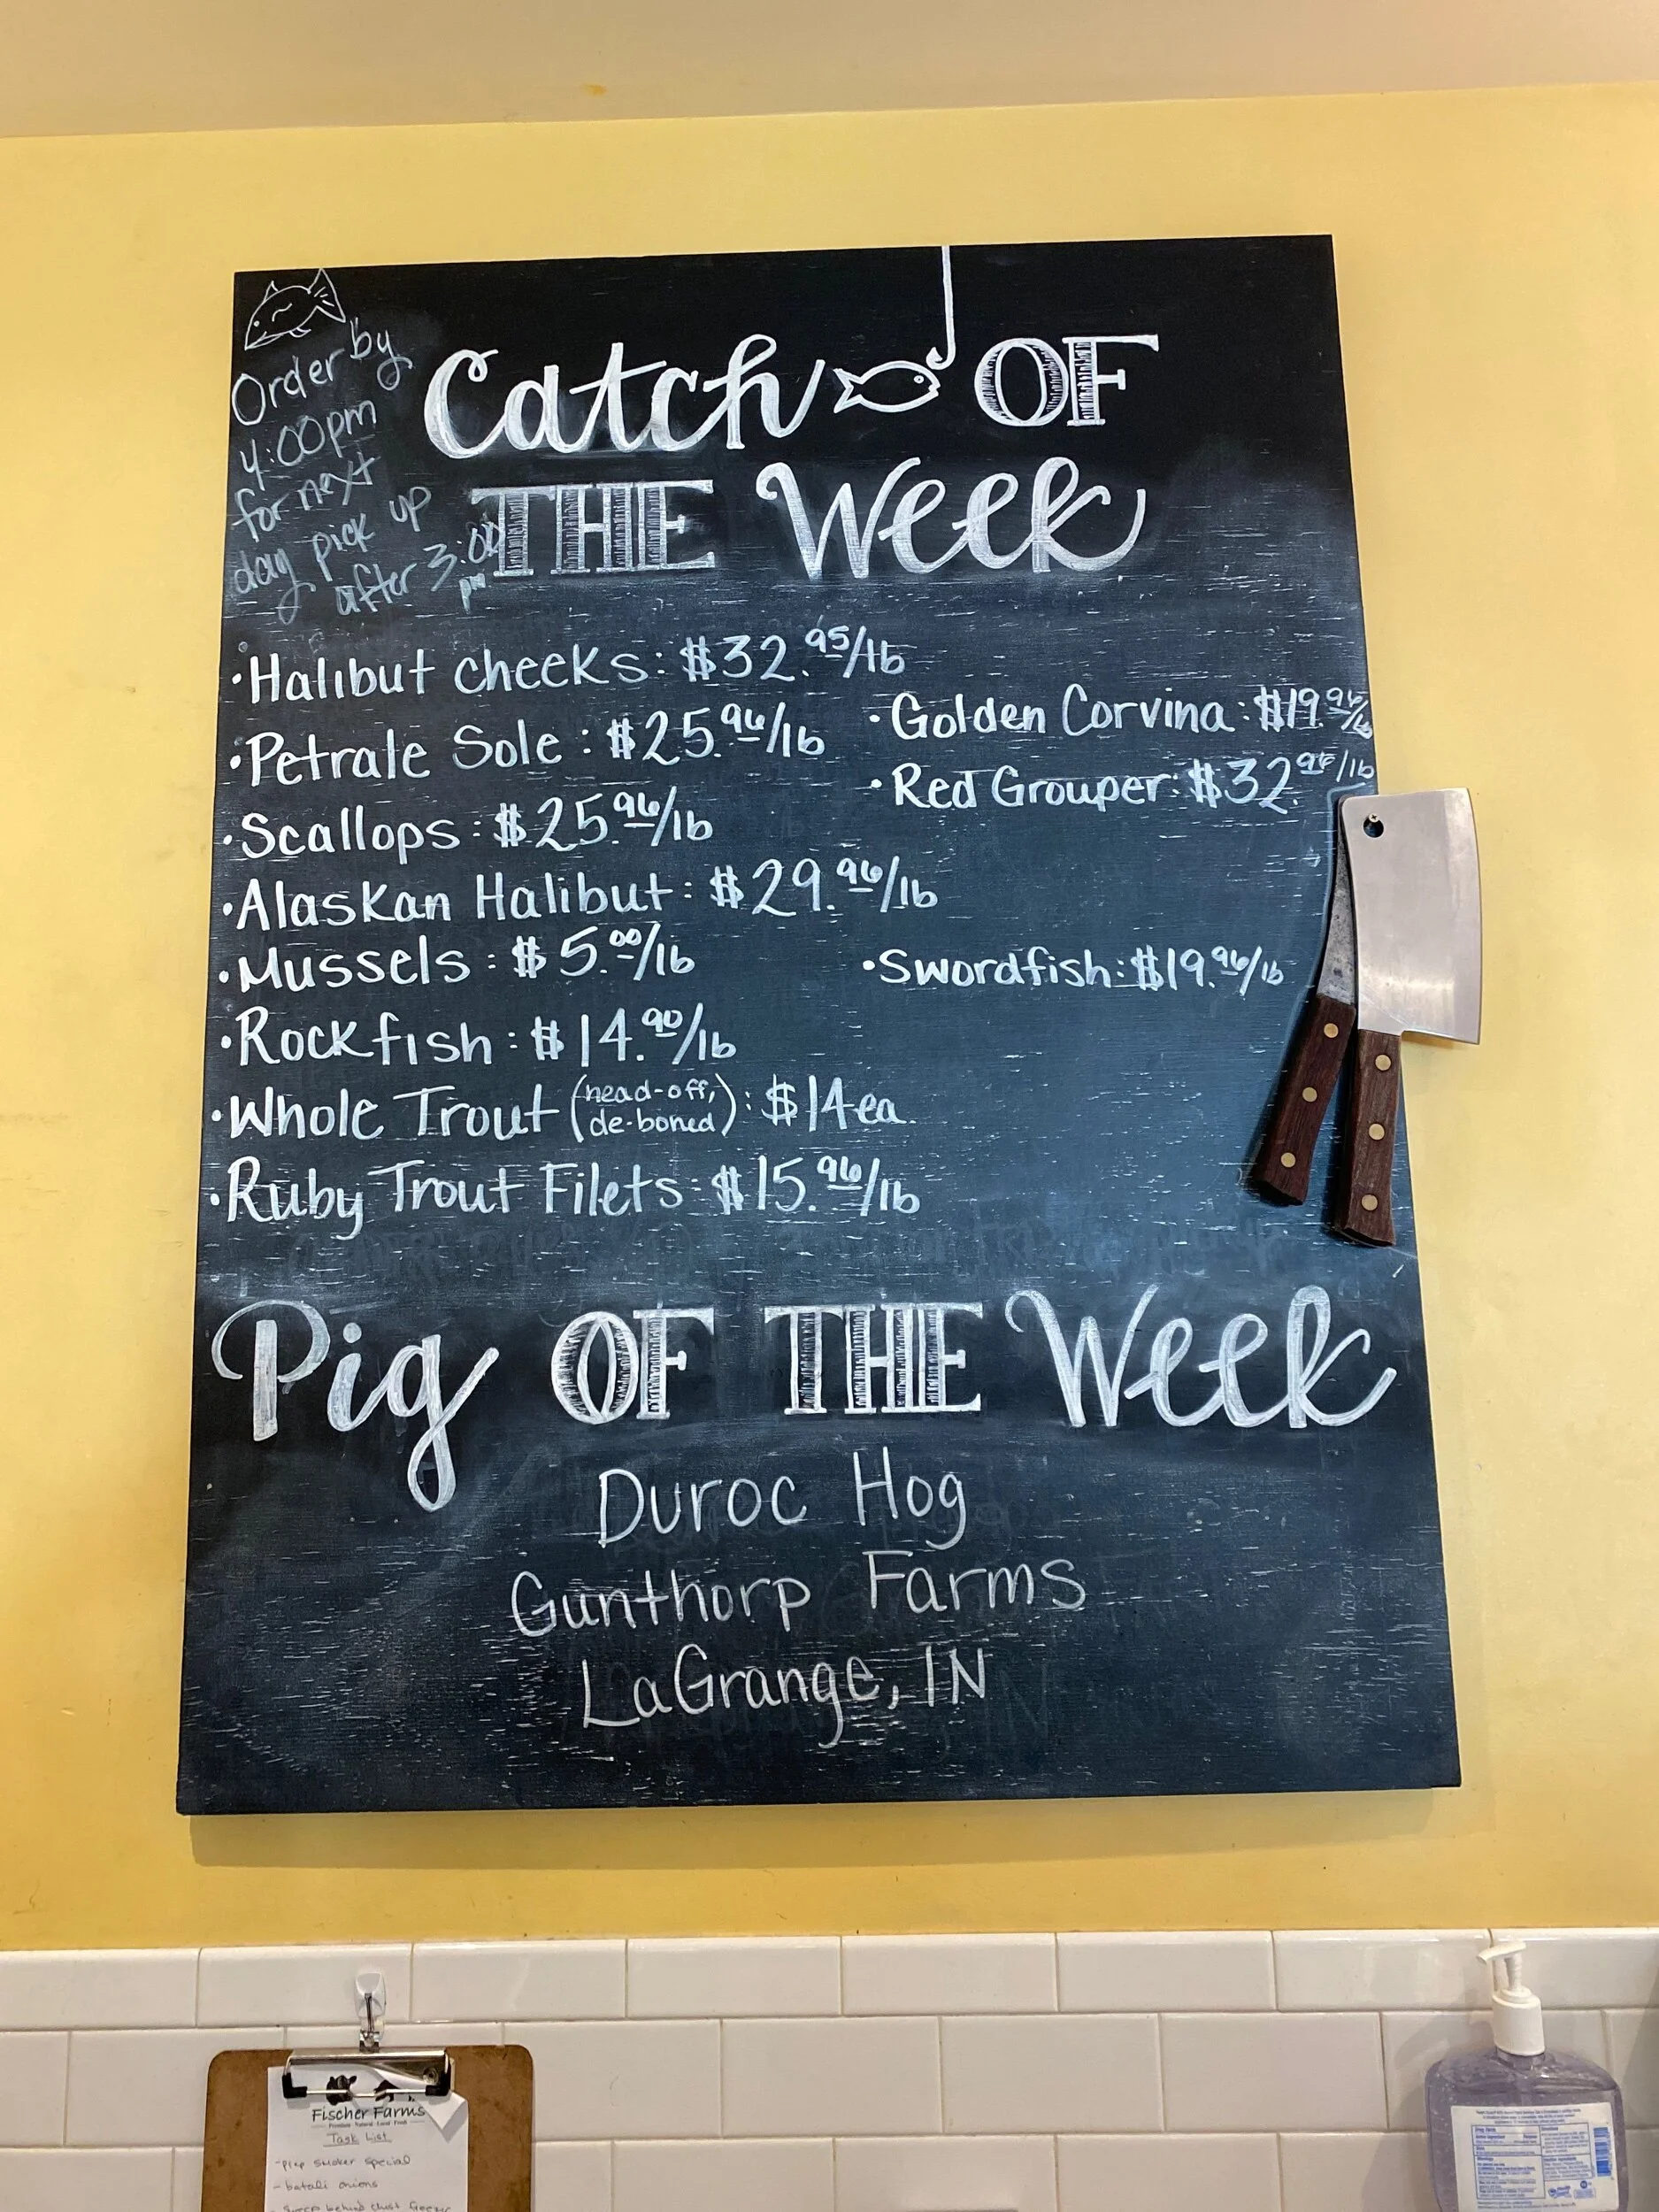 Order by
4:00pm
for next
day pick up
after 3:00
pm
Catch OF
THE Week
•Halibut cheeks: $32.95/lb
•Petrale Sole: $25.96/lb
•Scallops: $25.96/lb
•Alaskan Halibut: $29.96/lb
•Mussels: $5.00/lb
•Rockfish: $14.90/lb
•Whole Trout (head-off, de-boned): $14ea.
•Ruby Trout Filets: $15.96/lb
•Golden Corvina: $19.96/lb
•Red Grouper: $32.96/lb
•Swordfish: $19.96/lb
Pig OF THE Week
Duroc Hog
Gunthorp Farms
LaGrange, IN
Fischer Farms
Premium Natural Local Food
Task List
-prep smoker special
-batali onions
-sweep behind chest freezer